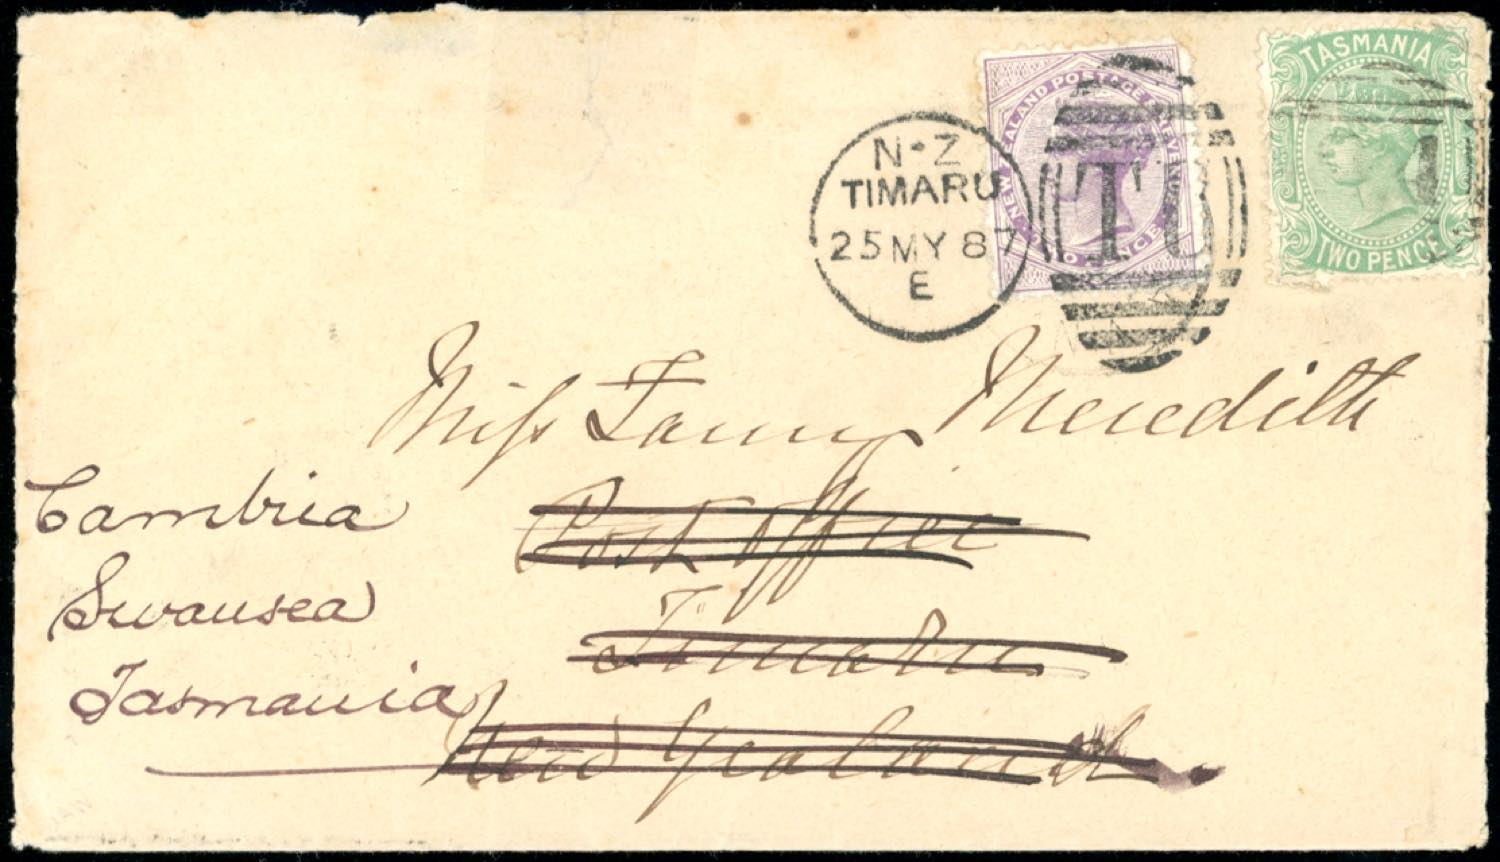 TASMANIA
TWO PENCE
NEW ZEALAND POSTAGE & REVENUE
TWO PENCE
N·Z
TIMARU
25 MY 87
E
Miss Fanny Meredith
Post Office
Timaru
New Zealand
Cambria
Swansea
Tasmania